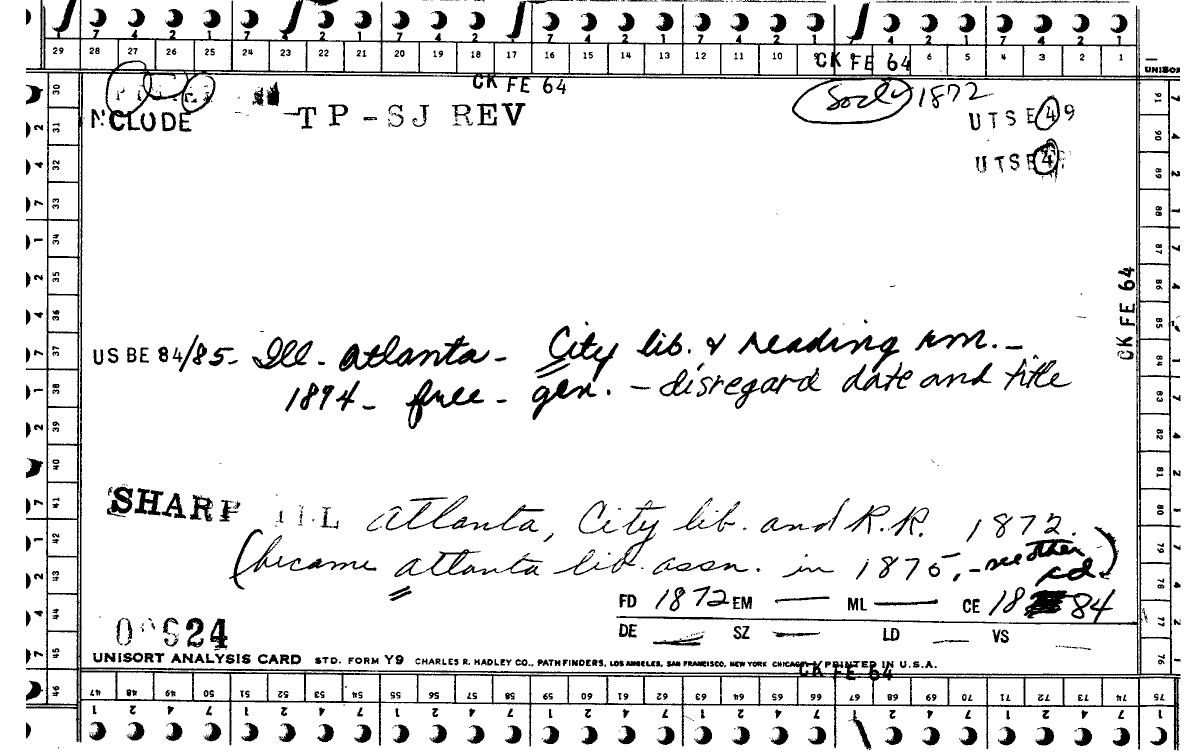 7 4 2 1 7 4 2 1 7 4 2 1 7 4 2 1 7 4 2 1 7 4 2 1 7 4 2 1
29 28 27 26 25 24 23 22 21 20 19 18 17 16 15 14 13 12 11 10 6 5 4 3 2 1
CK FE 64
UNISOR
CK FE 64
Socly 1872
NCLUDE
TP-SJ REV
UTSE 49
UTSE 4
CK FE 64
US BE 84/85- Ill- Atlanta- City lib. & reading rm.-
1894- free- gen. - disregard date and title
SHARP ILL Atlanta, City lib. and R.R. 1872.
(became Atlanta lib. assn. in 1875,-see other cd.)
FD 1872 EM — ML — CE 18 84
DE — SZ — LD — VS
924
UNISORT ANALYSIS CARD STD. FORM Y9 CHARLES R. HADLEY CO., PATHFINDERS, LOS ANGELES, SAN FRANCISCO, NEW YORK CHICAGO PRINTED IN U.S.A.
CK FE 64
30 31 32 33 34 35 36 37 38 39 40 41 42 43 44 45 46
91 90 89 88 87 86 85 84 83 82 81 80 79 78 77 76
47 48 49 50 51 52 53 54 55 56 57 58 59 60 61 62 63 64 65 66 67 68 69 70 71 72 73 74 75
1 2 4 7 1 2 4 7 1 2 4 7 1 2 4 7 1 2 4 7 1 2 4 7 1 2 4 7 1